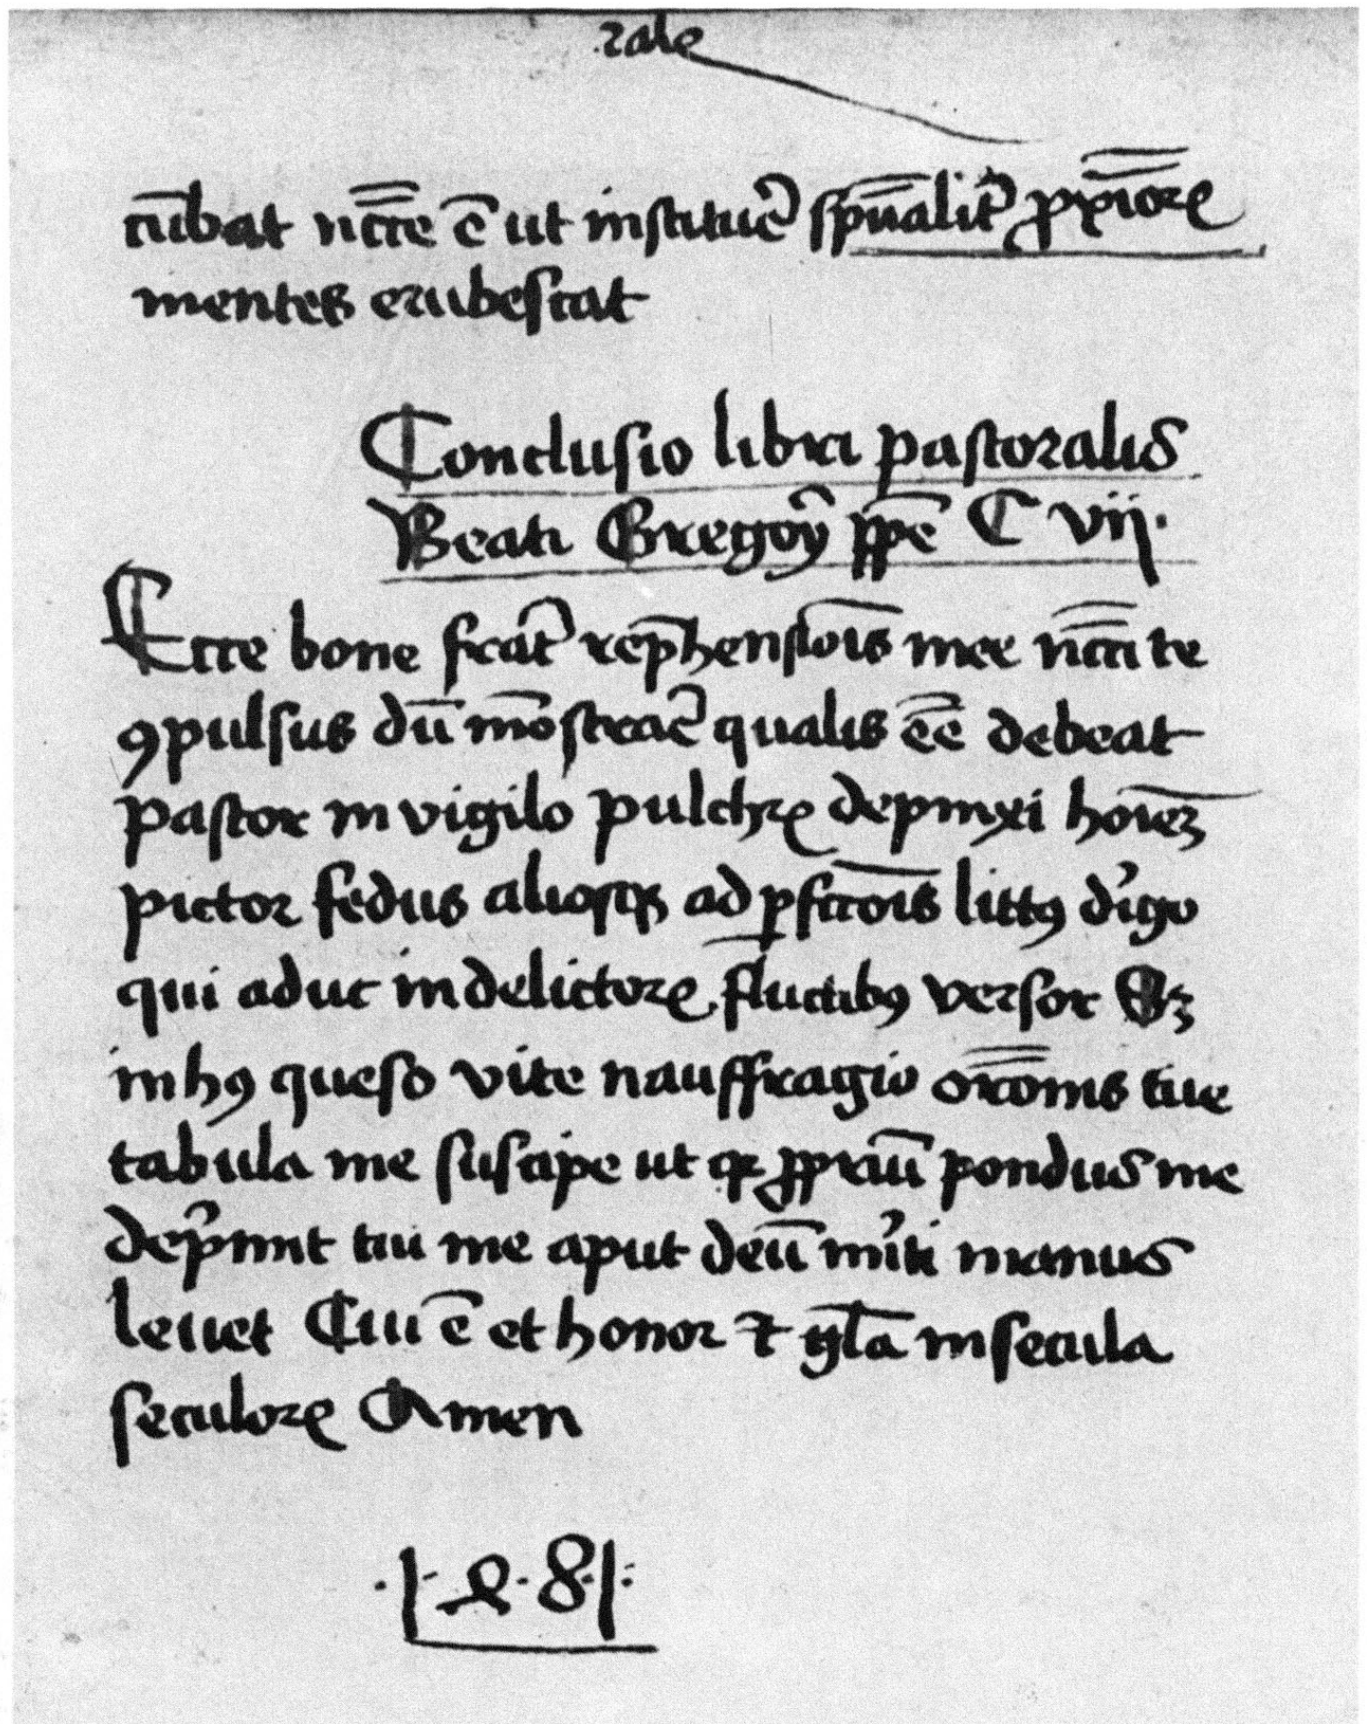 rale
cūbat nccē ē ut instituēr spūalit᷑ pxiōrꝝ
mentes erubescat
Conclusio libri pastoralis
Beati Gregoꝝ ppe C vij.
Ecce bone frat᷑ rep̄hensiōis mee nccitate
ꝯpulsus dū mōstrar᷑ qualis eē debeat
pastor invigilo pulchrꝝ depinxi hoīeꝫ
pictor fedus aliosqꝫ ad ꝑfcc̄ois littꝰ dʼigo
qui aduc in delictorꝝ fluctibꝰ versor Sꝫ
in hꝰ queso vite nauffragio orōnis tue
tabula me suscipe ut qꝛ ꝓpriū pondus me
depʼimit tui me aput deū mʼiti manus
levet Cui ē et honor ⁊ gl̄a in secula
seculorꝝ Amen